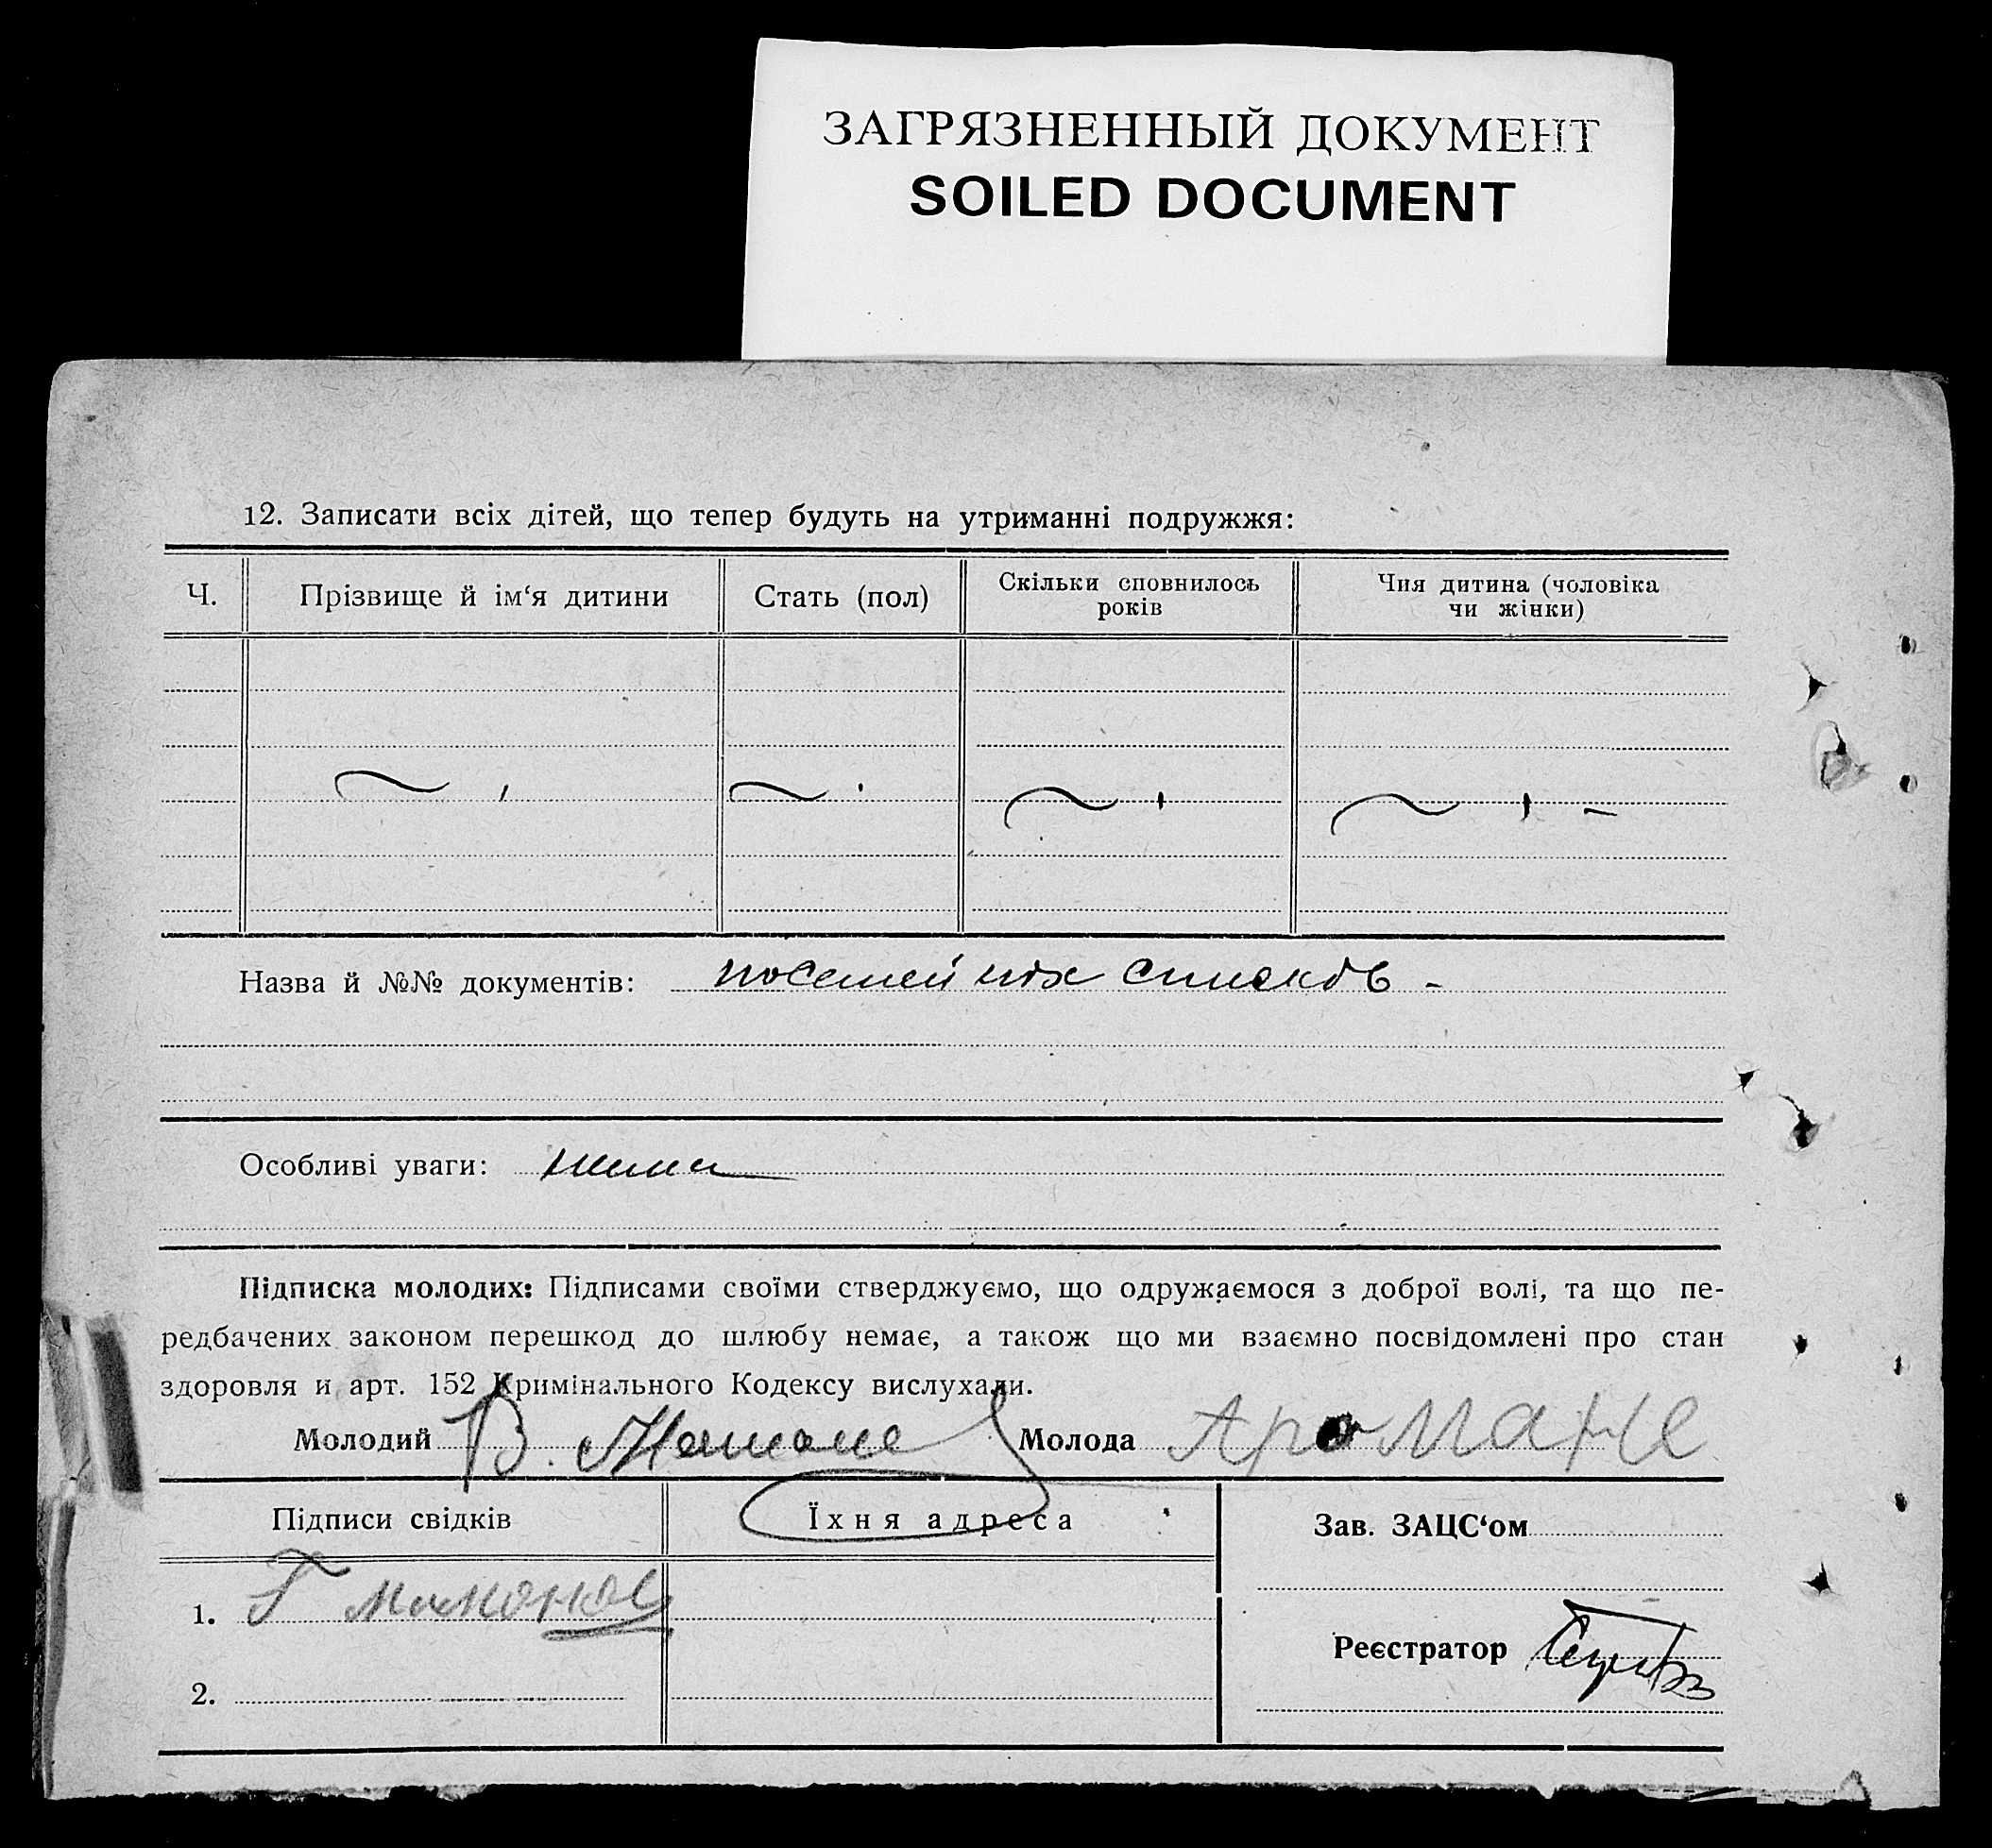 ЗАГРЯЗНЕННЫЙ ДОКУМЕНТ
SOILED DOCUMENT
12. Записати всіх дітей, що тепер будуть на утриманні подружжя:
Ч. Прізвище й ім‘я дитини Стать (пол) Скільки сповнилось років Чия дитина (чоловіка чи жінки)
Назва й №№ документів: посемейних списков -
Особливі уваги: нема
Підписка молодих: Підписами своїми стверджуємо, що одружаємося з доброї волі, та що пе-
редбачених законом перешкод до шлюбу немає, а також що ми взаємно посвідомлені про стан
здоровля и арт. 152 Кримінального Кодексу вислухали.
Молодий В. Молода
Підписи свідків Їхня адреса Зав. ЗАЦС‘ом
1. Г
Реєстратор
2.